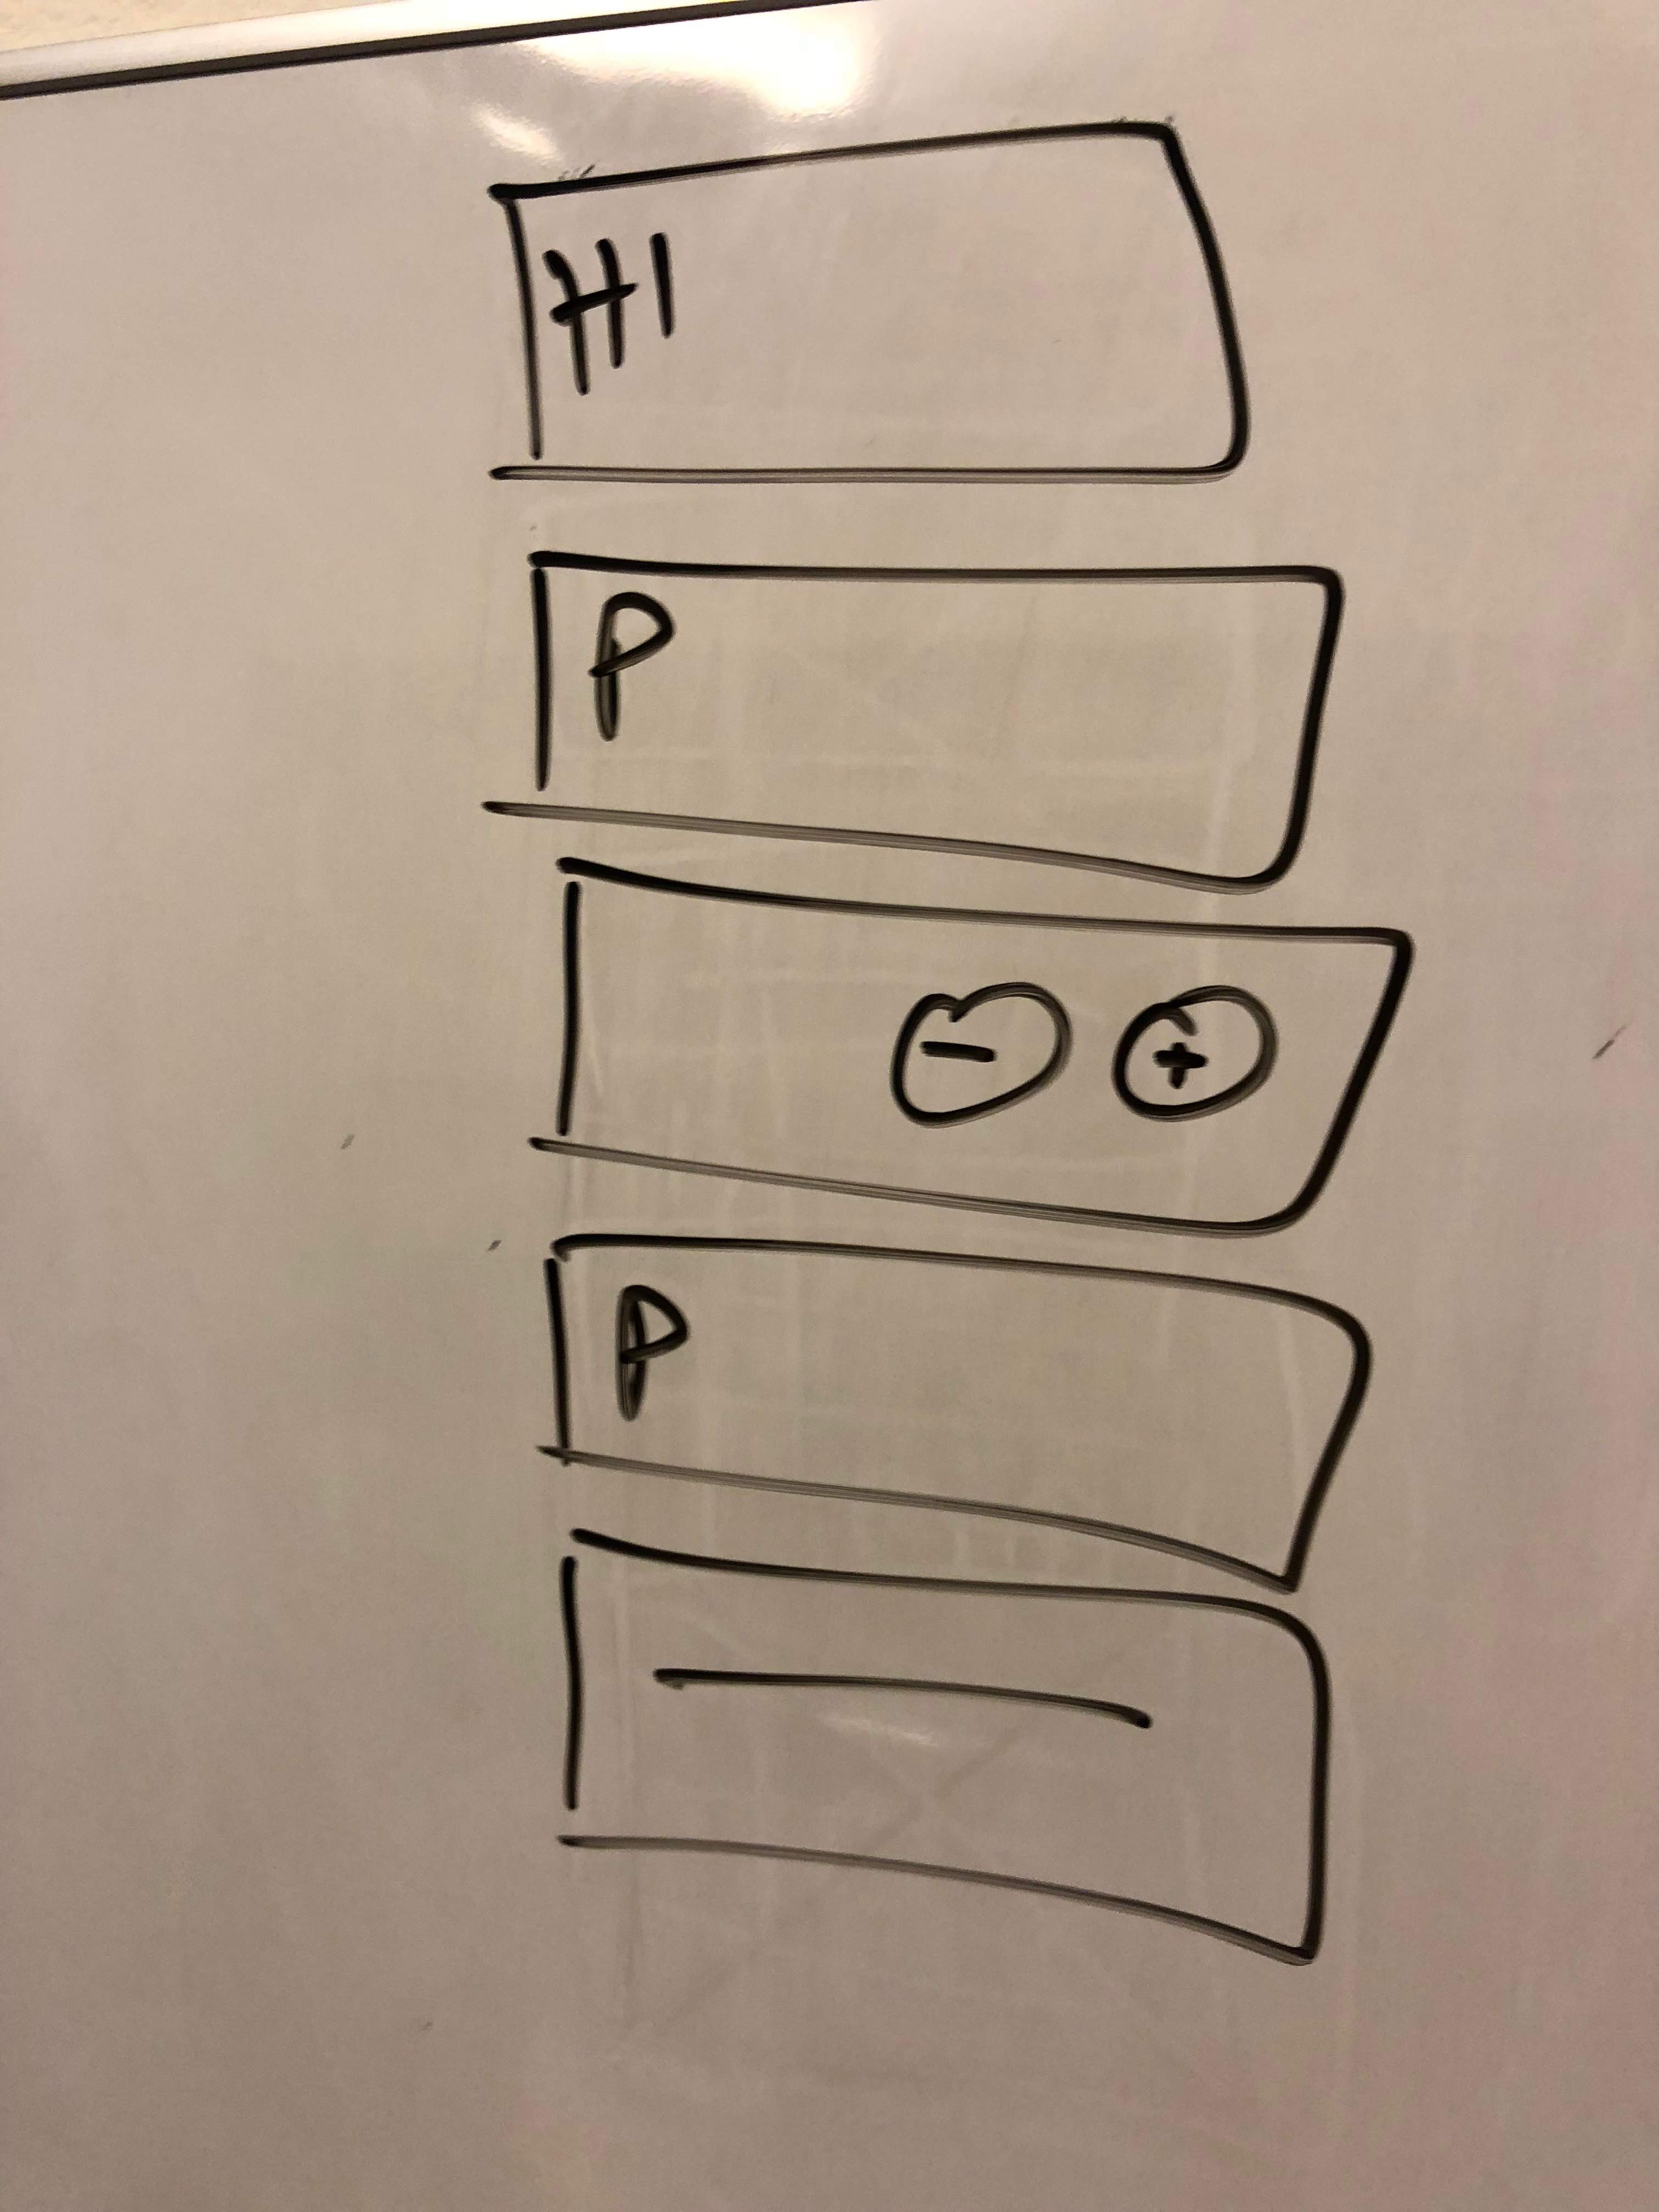 H1
P
- +
P